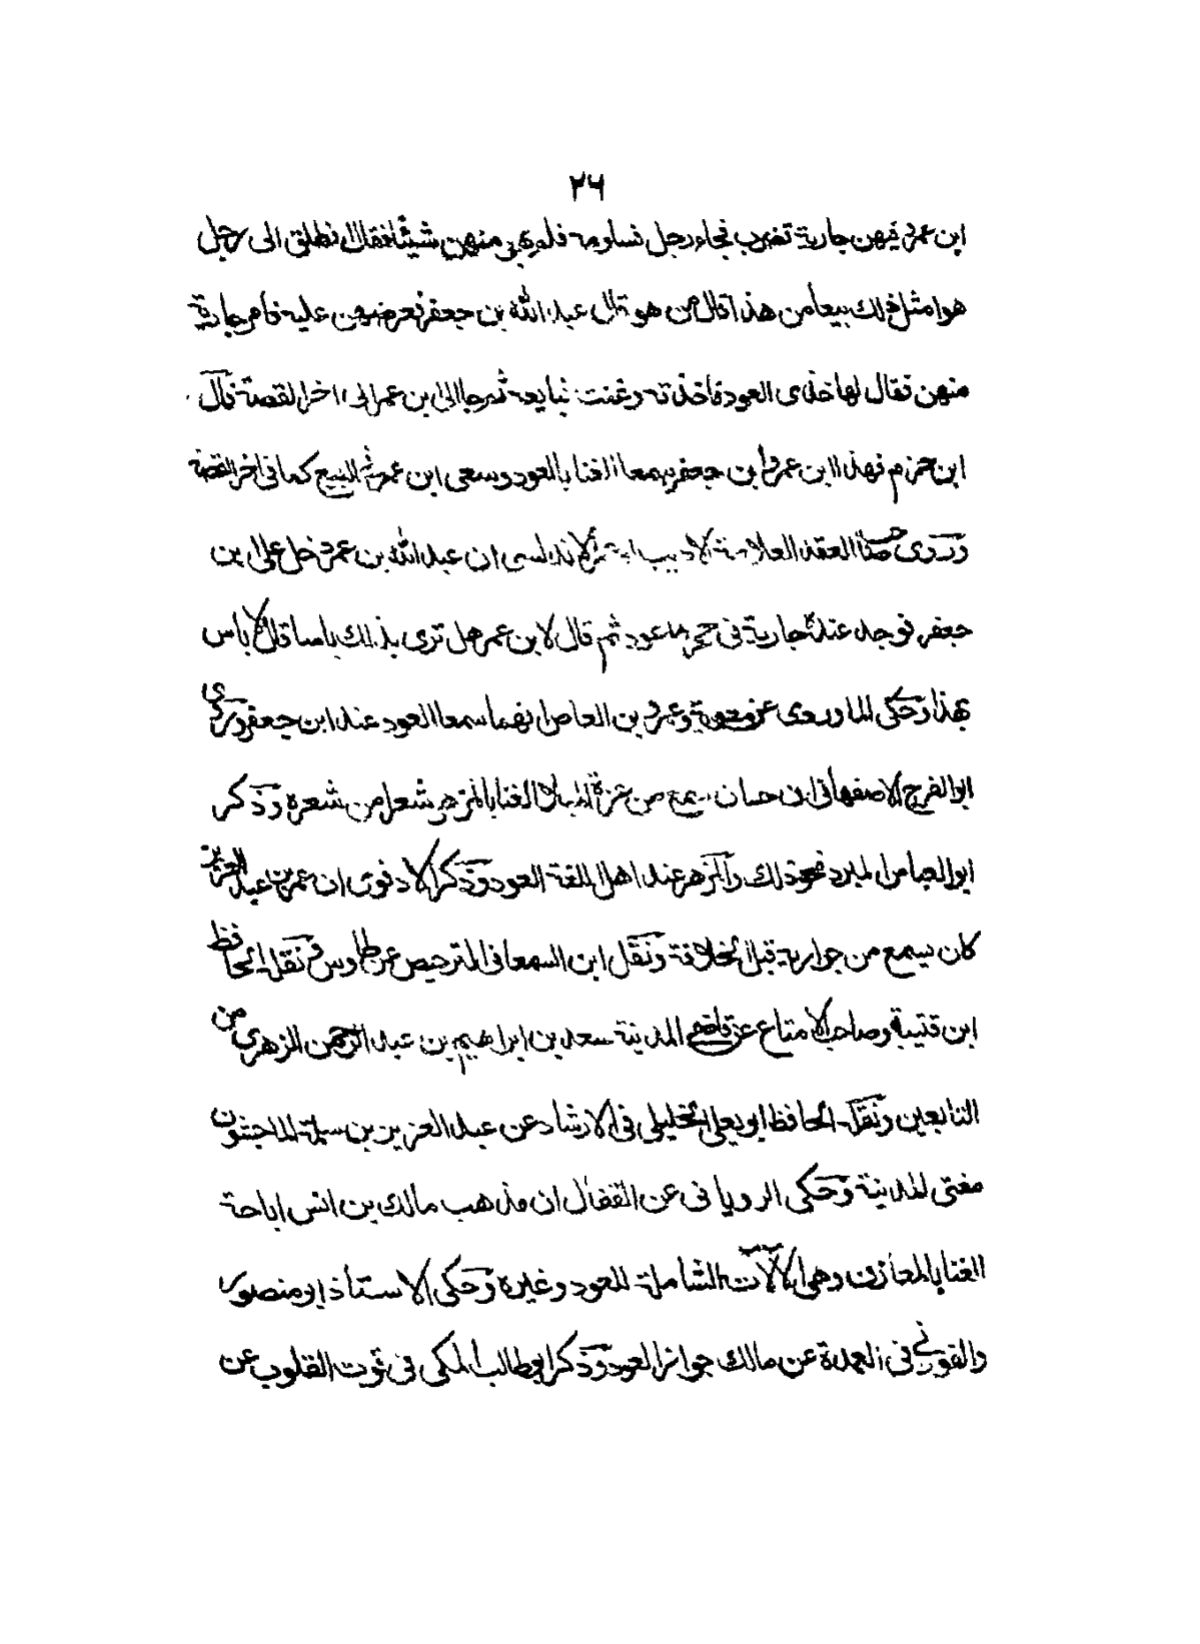 ٢٦
ابن عمر فيهن جارية تضرب فجاء رجل فساومه فلم يهو منهن شيئا فقال انطلق الى رجل
هو امثل لك بيعا من هذا قال من هو قال عبد الله بن جعفر فعرضهن عليه فامر جارية
منهن فقال لها خذى العود فاخذته وغنت فبايعه ثم جا الى ابن عمر الى اخر القصة قال
ابن حزم فهذا ابن عمر وابن جعفر سمعا الغنا بالعود وسعى ابن عمر فى البيع كما فى اخر القصة
وروى صا العقد العلامة الاديب الاندلسى ان عبد الله بن عمر دخل على ابن
جعفر فوجد عنده جارية فى حجرها عود ثم قال لابن عمر هل ترى بذلك باسا قال لا باس
بهذا وحكى الماوردى عن معوية وعمرو بن العاص انهما سمعا العود عند ابن جعفر وروى
ابو الفرج الاصفهانى ان حسان سمع من عزة الميلا الغنا بالمزهر بشعر من شعره وذكر
ابو العباس المبرد نحو ذلك والمزهر عند اهل اللغة العود وذكر الادفوى ان عمر بن عبد العزيز
كان يسمع من جواريه قبل الخلافة ونقل ابن السمعانى الترخيص عن طاوس ونقله الحافظ
ابن قتيبة وصاحب الامتاع عن قاضى المدينة سعد بن ابراهيم بن عبد الرحمن الزهرى من
التابعين ونقله الحافظ ابو يعلى الخليلى فى الارشاد عن عبد العزيز بن سلمة الماجشون
مفتى المدينة وحكى الرويانى عن القفال ان مذهب مالك بن انس اباحة
الغنا بالمعازف وهى الالات الشاملة للعود وغيره وحكى الاستاذ ابو منصور
والفورانى فى العمدة عن مالك جواز العود وذكر ابو طالب المكى فى قوت القلوب عن